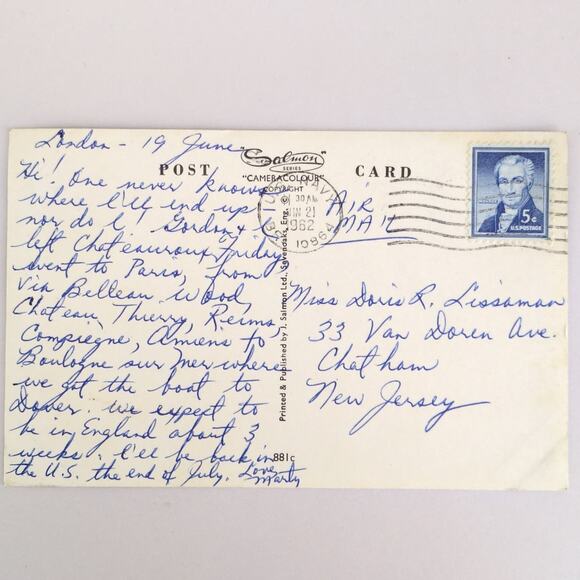 London - 19 June
Hi! One never knows
where I'll end up
nor do I. Gordon &
left Chateauroux Friday
went to Paris, from
via Belleau Wood,
Chateau Thierry, Reims,
Compiegne, Amiens to
Boulogne sur mer where
we got the boat to
Dover. We expect to
be in England about 3
weeks. I'll be back in
the U.S. the end of July. Love,
Marty
POST CARD
Salmon
SERIES
"CAMERACOLOUR"
COPYRIGHT
Printed & Published by J. Salmon Ltd., Sevenoaks, Eng. ©
881c
AIR
MAIL
30 AM
JUN 21
1962
10986A
5c
U.S. POSTAGE
Miss Doris R. Lissaman
33 Van Doren Ave.
Chatham
New Jersey